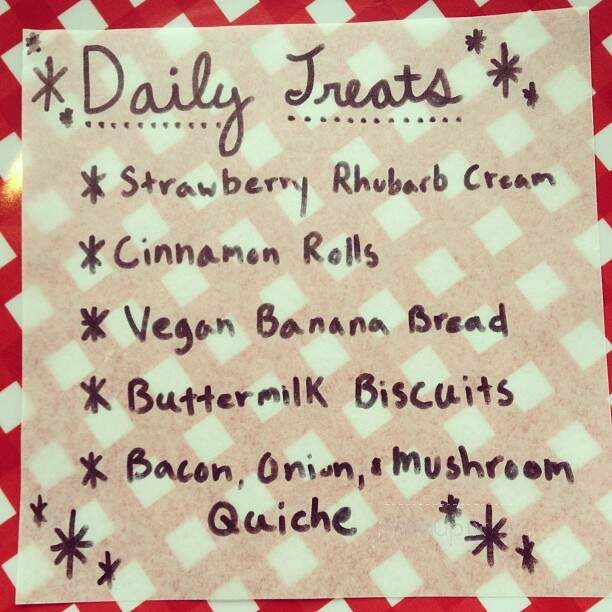 Daily Treats
* Strawberry Rhubarb Cream
* Cinnamon Rolls
* Vegan Banana Bread
* Buttermilk Biscuits
* Bacon, Onion, & Mushroom
Quiche